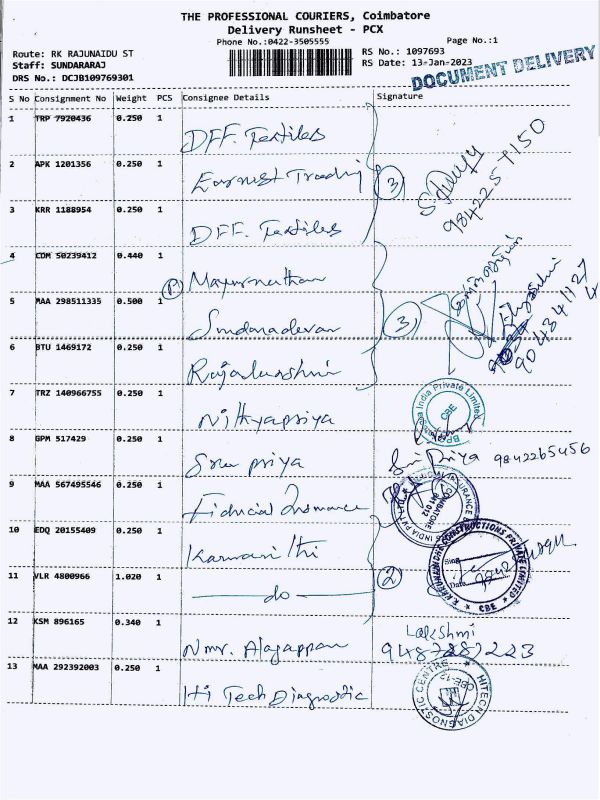 THE PROFESSIONAL COURIERS, Coimbatore
Delivery Runsheet - PCX
Phone No.:0422-3505555
Page No.:1
Route: RK RAJUNAIDU ST
RS No.: 1097693
Staff: SUNDARARAJ
RS Date: 13-Jan-2023
DRS No.: DCJB109769301
DOCUMENT DELIVERY
S No Consignment No Weight PCS Consignee Details Signature
1 TRP 7920436 0.250 1 DFF. Textiles
2 APK 1201356 0.250 1 Earnest Trading 3
3 KRR 1188954 0.250 1 DFF. Textiles
4 COM 50239412 0.440 1 Mayurnathan
5 MAA 298511335 0.500 1 Sundaradevan 3
90434
6 BTU 1469172 0.250 1 Rajalakshmi
7 TRZ 140966755 0.250 1 Nithyapriya
India Private Limited
CBE
8 GPM 517429 0.250 1 Sree priya
Sri Priya 9842265456
9 MAA 567495546 0.250 1 Fiducial Insurance
COIMBATORE
641 012
10 EDQ 20155409 0.250 1
CONSTRUCTIONS PRIVATE LIMITED
Sing
Date
CBE
11 VLR 4800966 1.020 1 do 2
12 KSM 896165 0.340 1 Nmr. Alagappan
Lakshmi
13 MAA 292392003 0.250 1 Hi Tech Diagnostic
HITECH DIAGNOSTIC CENTRE
CBE-12